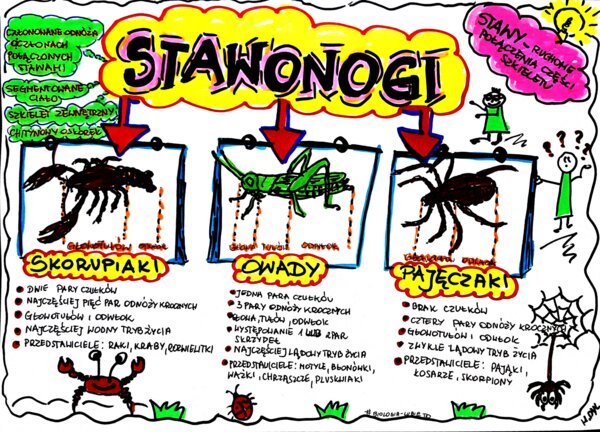 CZŁONOWANE ODNÓŻA
O CZŁONACH
POŁĄCZONYCH
STAWAMI
SEGMENTOWANE
CIAŁO
SZKIELET ZEWNĘTRZNY
CHITYNOWY OSKÓREK
STAWONOGI
STAWY - RUCHOME
POŁĄCZENIA CZĘŚCI
SZKIELETU
GŁOWOTUŁÓW ODWŁOK
GŁOWA TUŁÓW ODWŁOK
GŁOWOTUŁÓW ODWŁOK
SKORUPIAKI
DWIE PARY CZUŁKÓW
NAJCZĘŚCIEJ PIĘĆ PAR ODNÓŻY KROCZNYCH
GŁOWOTUŁÓW I ODWŁOK
NAJCZĘŚCIEJ WODNY TRYB ŻYCIA
PRZEDSTAWICIELE: RAKI, KRABY, ROZWIELITKI
OWADY
JEDNA PARA CZUŁKÓW
3 PARY ODNÓŻY KROCZNYCH
GŁOWA, TUŁÓW, ODWŁOK
WYSTĘPOWANIE 1 LUB 2 PAR
SKRZYDEŁ
NAJCZĘŚCIEJ LĄDOWY TRYB ŻYCIA
PRZEDSTAWICIELE: MOTYLE, BŁONKÓWKI,
WAŻKI, CHRZĄSZCZE, PLUSKWIAKI
PAJĘCZAKI
BRAK CZUŁKÓW
CZTERY PARY ODNÓŻY KROCZNYCH
GŁOWOTUŁÓW I ODWŁOK
ZWYKLE LĄDOWY TRYB ŻYCIA
PRZEDSTAWICIELE: PAJĄKI,
KOSARZE, SKORPIONY